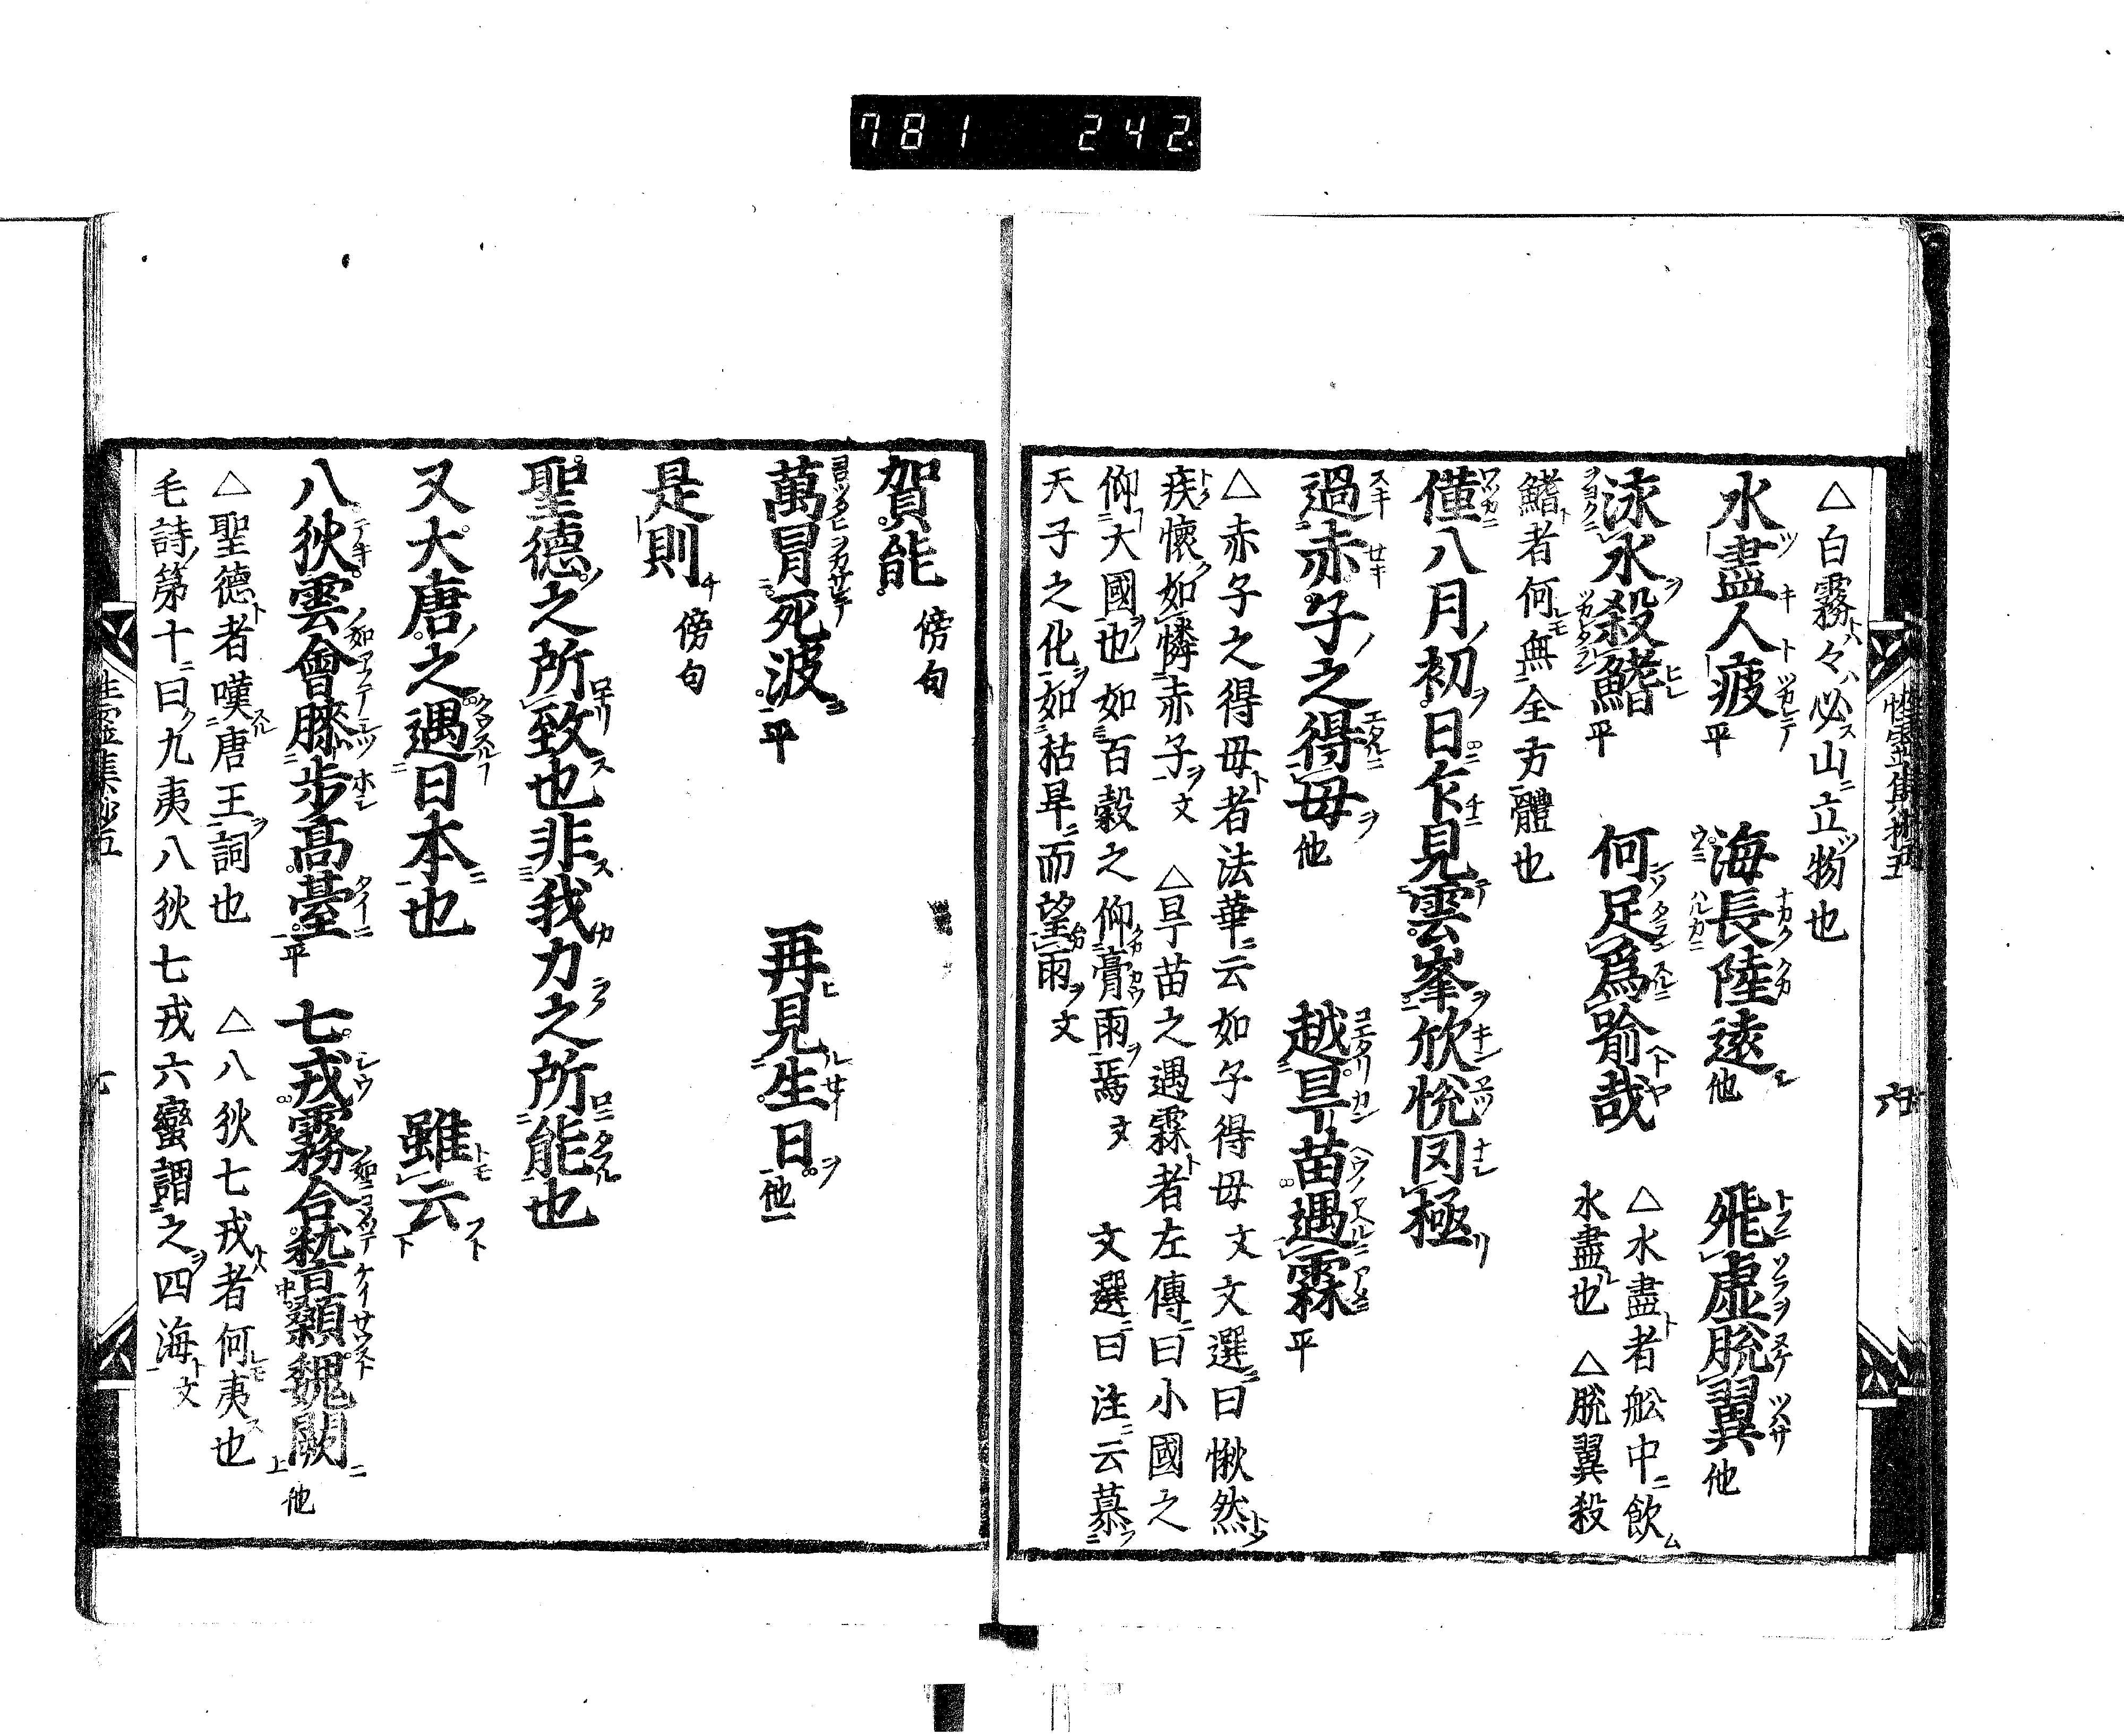 781 242
△白霧々必山立物也
水盡人疲平 海長陸遠他 飛虚脱翼他
泳水殺鰭平 何足爲喻哉 △水盡者舩中飲
水盡也 △脱翼殺
鰭者何無全身體也
僅八月初日乍見雲峯欣悅罔極
過赤子之得母他 越旱苗遇霖平
△赤子之得母者法華云如子得母文文選曰愀然
疾懷如憐赤子文 △旱苗之遇霖者左傳曰小國之
仰大國也如百穀之仰膏雨焉文 文選曰注云慕
天子之化如枯旱而望雨文
性靈集抄五 六
賀能傍句
萬冒死波平 再見生日他
是則傍句
聖德之所致也非我力之所能也
又大唐之遇日本也 雖云
八狄雲會膝步高臺平 七戎霧合稽顙魏闕他
△聖德者嘆唐王詞也 △八狄七戎者何夷也
毛詩第十曰九夷八狄七戎六蠻謂之四海文
性靈集抄五 七